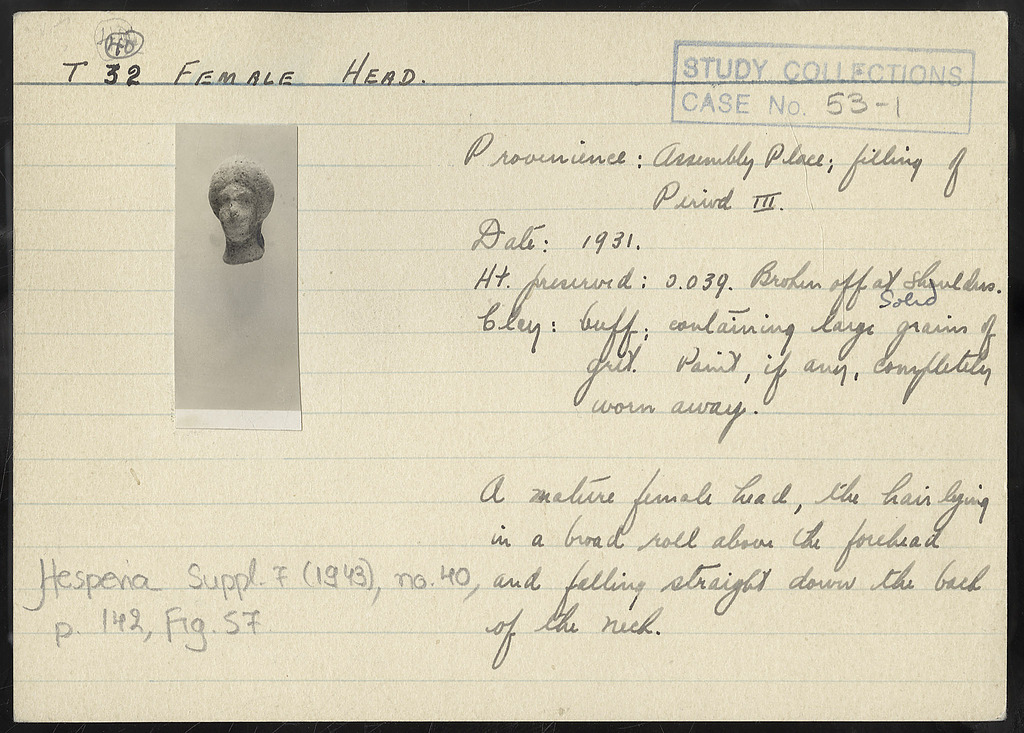 40
T 32 FEMALE HEAD.
STUDY COLLECTIONS
CASE No. 53-1
Provenience: Assembly Place; filling of
Period III.
Date: 1931.
Ht. preserved: 0.039. Broken off at shoulders.
Solid
Clay: buff; containing large grains of
grit. Paint, if any, completely
worn away.
A mature female head, the hair lying
in a broad roll above the forehead
and falling straight down the back
of the neck.
Hesperia Suppl. 7 (1943), no. 40,
p. 142, Fig. 57